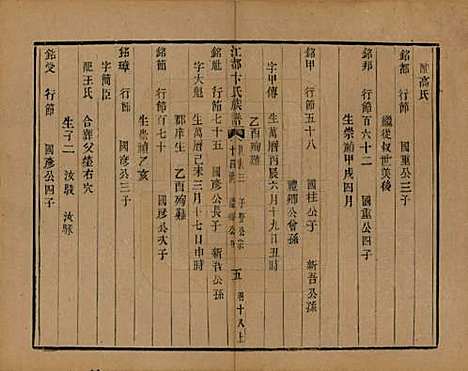 配高氏
銘都　行節　國重公三子
繼從叔世美後
銘邦　行節百六十二　國重公四子
生崇禎甲戌四月
銘甲　行節五十八　國柱公子　新吾公孫
禮卿公曾孫
字甲傳　生萬曆丙辰六月十九日丑時
乙酉殉難
江都卞氏族譜
五
銘魁　行節七十五　國彥公長子　新吾公孫
字大魁　生萬曆己未三月十七日申時
郡庠生　乙酉殉難
銘節　行節百七十　國彥公次子
生崇禎乙亥
銘璋　行節　國彥公三子
字簡臣　合葬父塋右穴
配王氏　生子二　汝駿　汝脉
銘受　行節　國彥公四子